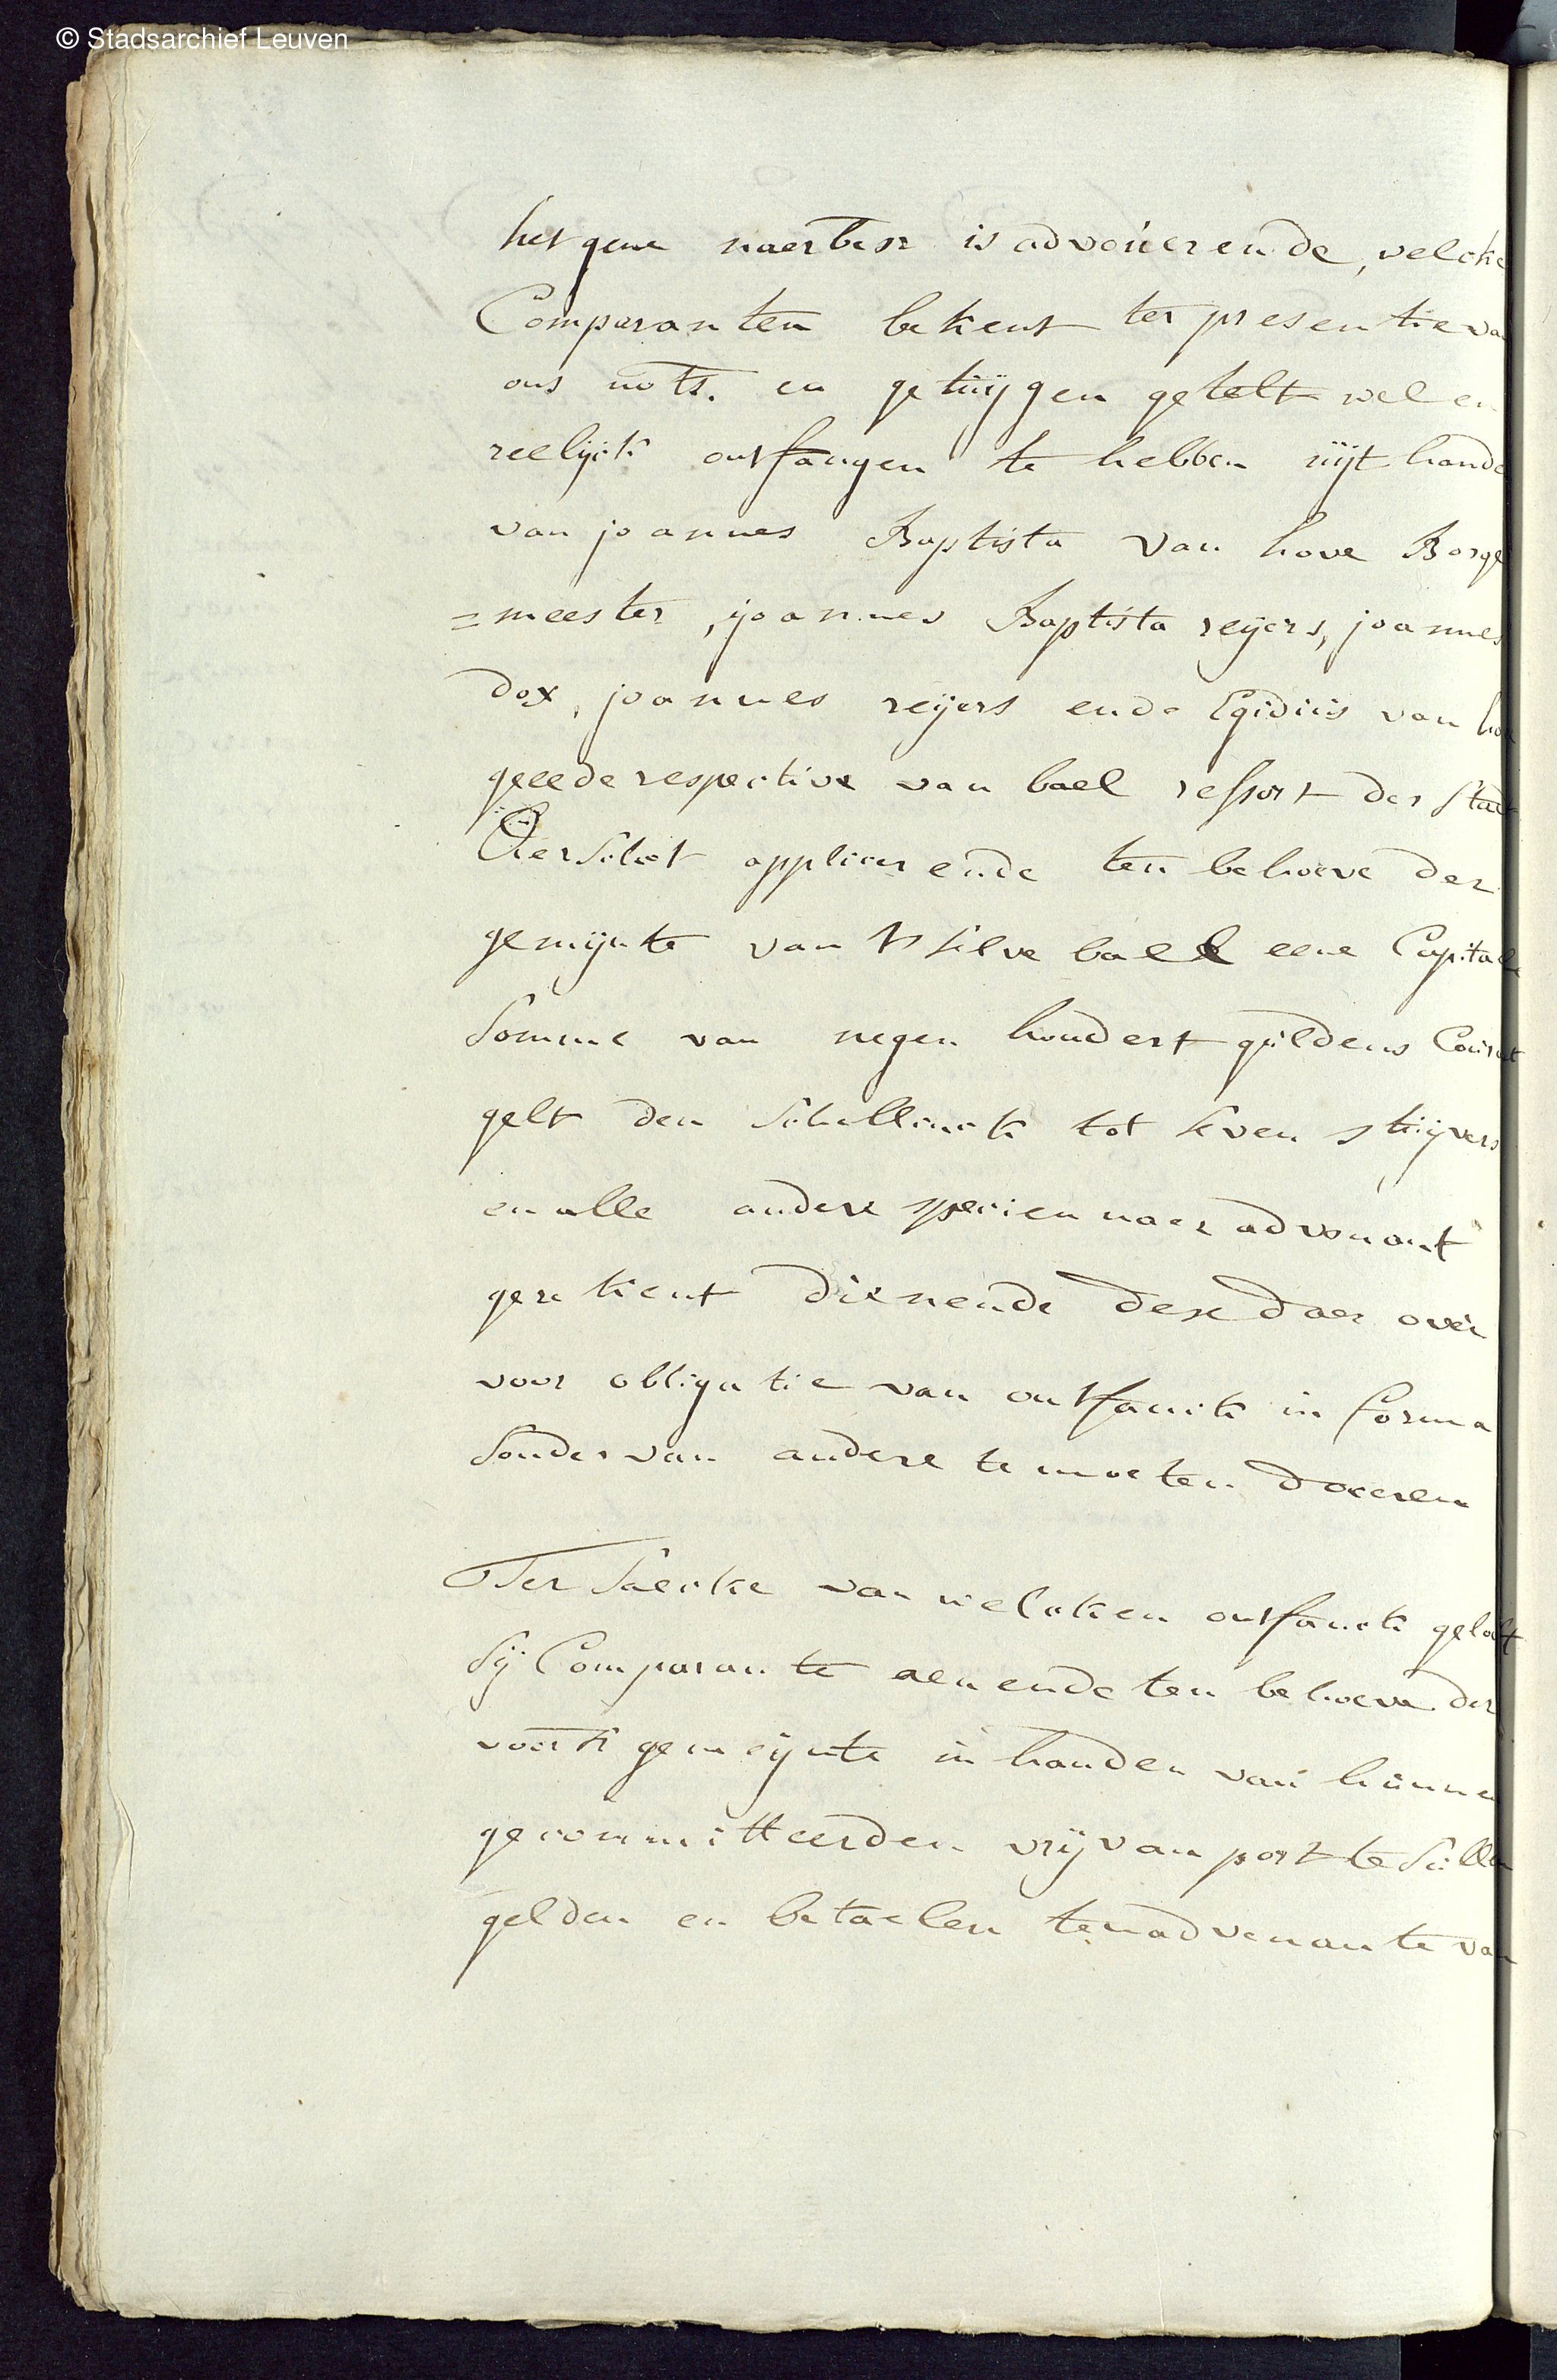 © Stadsarchief Leuven
het gene naerbesz is advoüerende, welcke
Comparanten bekent ter presentie va
ons nots. en getüÿgen getelt wel en
reelyck ontfangen te hebben üijt hande
van joannes Baptista van hove Borge
=meester, joannes Baptista reijers, joannes
dox, joannes reijers ende Egidiüs van ho
geeede respective van bael ressort der stadt
Aerschot applicerende ten behoeve der
gemijnte van 't selve bael eene Capitaele
Somme van negen hondert güldens Courant
gelt den schellinck tot seven stüijvers
en alle andere specien naer advenant
gerekent dienende dese daer over
voor obligatie van ontfanck in forma
Sonder van andere te moeten doceren
Ter saecke van welcken ontfanck geloft
sij Comparante aen ende ten behoeve der
voors gemeijnte in handen van hünne
gecommitteerden vrij van port te süllen
gelden en betaelen ten advenante van